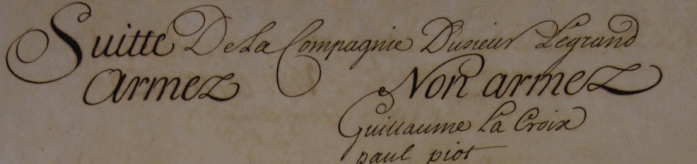 Suitte De La Compagnie Dusieur Legrand
Armez Non armez
Guillaume La Croix
paul piot